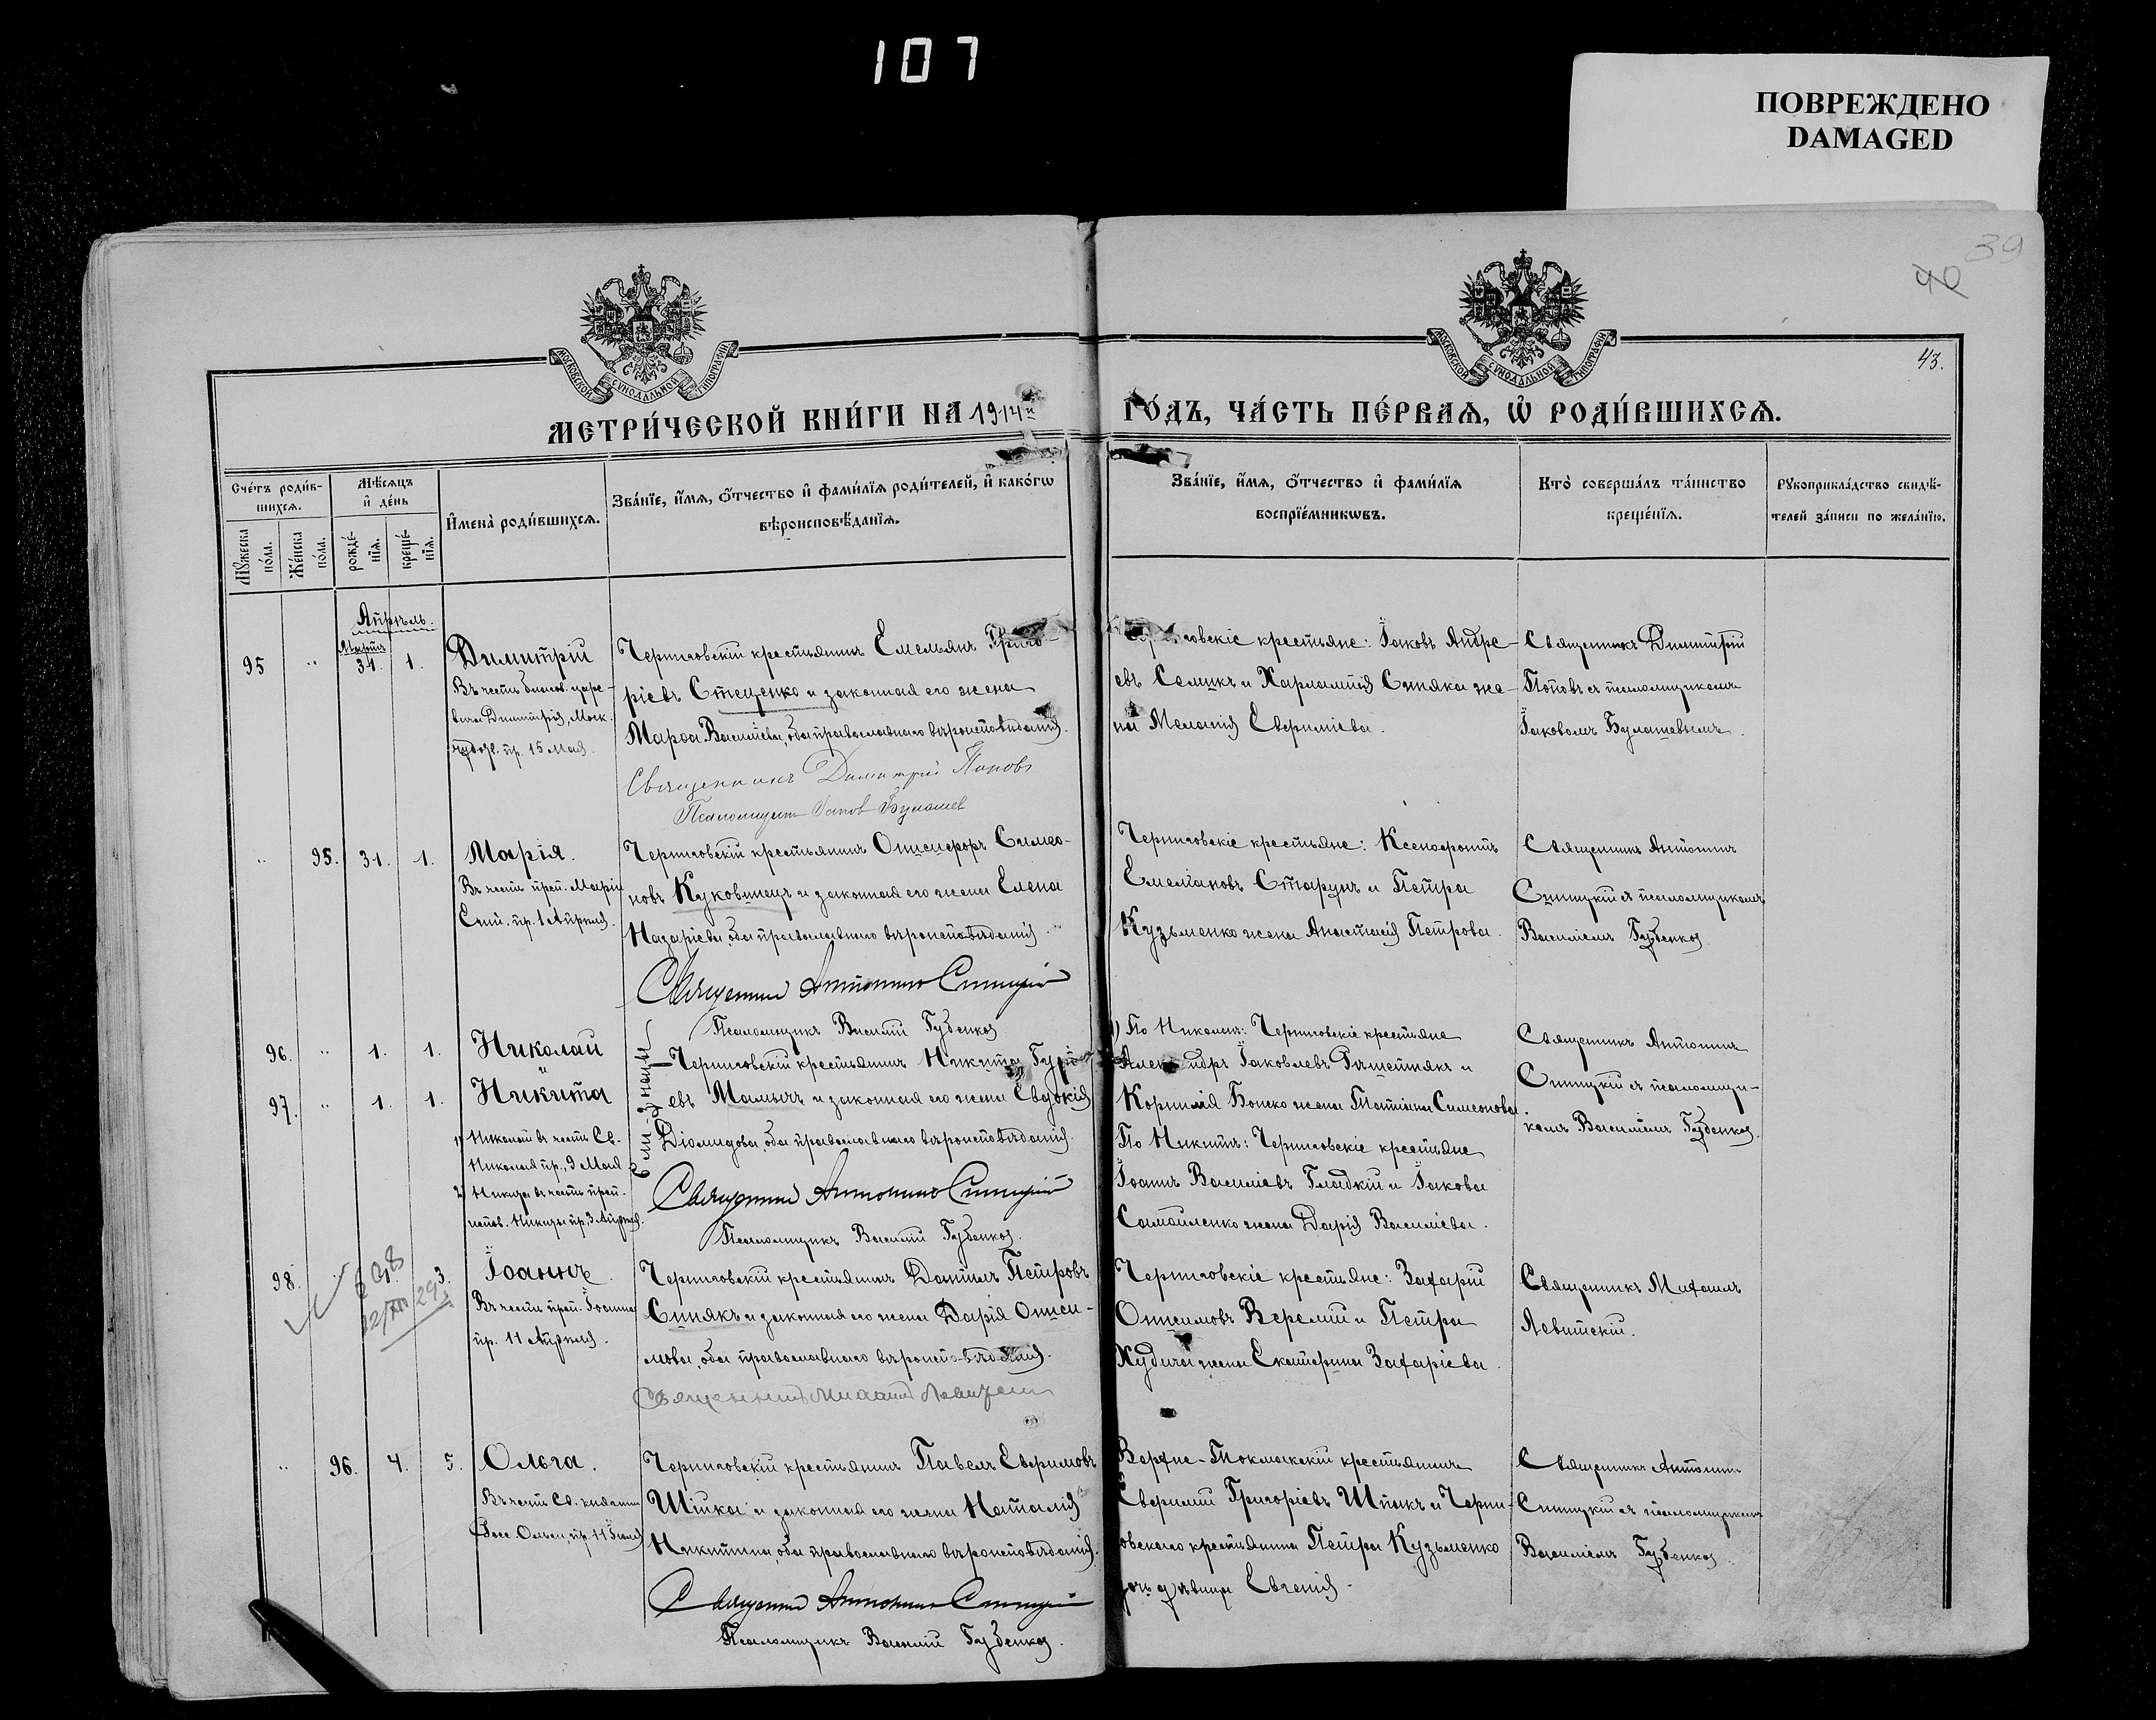 107
ПОВРЕЖДЕНО
DAMAGED
39
40
43.
МОСКОВСКОЙ СѴНОДАЛЬНОЙ ТИПОГРАФІИ
МОСКОВСКОЙ СѴНОДАЛЬНОЙ ТИПОГРАФІИ
МЕТРИ́ЧЕСКОЙ КНИ́ГИ НА 1914й
ГО́ДЪ, ЧА́СТЬ ПЕ́РВАѦ, Ѡ҆ РОДИ́ВШИХСѦ.
Сче́тъ роди́в-
шихсѧ.
Мѣ́сѧцъ
и҆ де́нь
Мꙋ́жеска
по́ла.
Же́нска
по́ла.
рожде́-
нїѧ.
креще́-
нїѧ.
И҆мена̀ роди́вшихсѧ.
Зва́нїе, и҆́мѧ, ѻ҆́тчество и҆ фами́лїѧ роди́телей, и҆ како́гѡ
вѣроисповѣ́данїѧ.
Зва́нїе, и҆́мѧ, ѻ҆́тчество и҆ фами́лїѧ
воспрїе́мникѡвъ.
Кто̀ соверша́лъ та́инство
креще́нїѧ.
Рꙋкоприкла́дство свидѣ́-
телей за́писи по жела́нїю.
Апрѣль.
Марта
95 " 31. 1. Димитрій
Въ честь благов. царе-
вича Димитрія, Моск.
чудот. пр. 15 Мая.
Черниговскій крестьянинъ Емельянъ Григо-
ріевъ Стеценко и законная его жена
Марѳа Васильева, оба православнаго вѣроисповѣданія.
Священникъ Димитрій Поповъ
Псаломщикъ Іаковъ Булашев
крестьяне: Іаковъ Андре-
евъ Селикъ и Харлампія Синяка же-
на Меланія Евфиміева.
Священникъ Димитрій
Поповъ съ псаломщикомъ
Іаковомъ Булашевымъ.
" 95. 31. 1. Марія.
Въ честь преп. Маріи
Егип. пр. 1 Апрѣля.
Черниговскій крестьянинъ Онисифоръ Симео-
новъ Куковинецъ и законная его жена Елена
Назаріева, оба православнаго вѣроисповѣданія.
Священникъ Антонинъ Синицкій
Псаломщикъ Василій Губенко
Черниговскіе крестьяне: Ксенофонтъ
Емельановъ Старунъ и Петра
Кузьменко жена Анастасія Петрова.
Священникъ Антонинъ
Синицкій съ псаломщикомъ
Василіемъ Губенко.
96. " 1. 1. Николай
и
97. " 1. 1. Никита
1) Николай въ честь Св.
Николая пр. 9 Мая
2) Никита въ честь преп.
испов. Никиты пр. 3 Апрѣля.
Близнецы
Черниговскій крестьянинъ Никита Гурі-
евъ Малычъ и законная его жена Евдокія
Діомидова, оба православнаго вѣроисповѣданія.
Священникъ Антонинъ Синицкій
Псаломщикъ Василій Губенко.
1) По Николаѣ: Черниговскіе крестьяне
Александръ Іаковлевъ Рѣшетнякъ и
Корнилія Бойко жена Татіана Симеонова.
По Никитѣ: Черниговскіе крестьяне
Іоаннъ Василіевъ Гладкій и Іакова
Самойленко жена Дарія Василіева.
Священникъ Антонинъ
Синицкій съ псаломщи-
комъ Василіемъ Губенко.
98. 3. Іоаннъ.
Въ честь преп. Іоанна
пр. 11 Апрѣля.
Черниговскій крестьянинъ Даніилъ Петровъ
Синякъ и законная его жена Дарія Ониси-
мова, оба православнаго вѣроисповѣданія.
Священникъ Михаилъ Левитскій
Черниговскіе крестьяне: Захарій
Онисимовъ Веремій и Петра
Худича жена Екатерина Захаріева.
Священникъ Михаилъ
Левитскій.
" 96. 4. 5. Ольга.
Въ честь Св. княгини
Рос. Ольги, пр. 11 Іюля
Черниговскій крестьянинъ Павелъ Евфимовъ
Шпика и законная его жена Наталія
Никитина, оба православнаго вѣроисповѣданія.
Священникъ Антонинъ Синицкій
Псаломщикъ Василій Губенко.
Верхне-Токмакскій крестьянинъ
Евфимій Григоріевъ Шпыкъ и Черни-
говскаго крестьянина Петра Кузьменко
дочь дѣвица Евгенія.
Священникъ Антонинъ
Синицкій съ псаломщикомъ
Василіемъ Губенко.